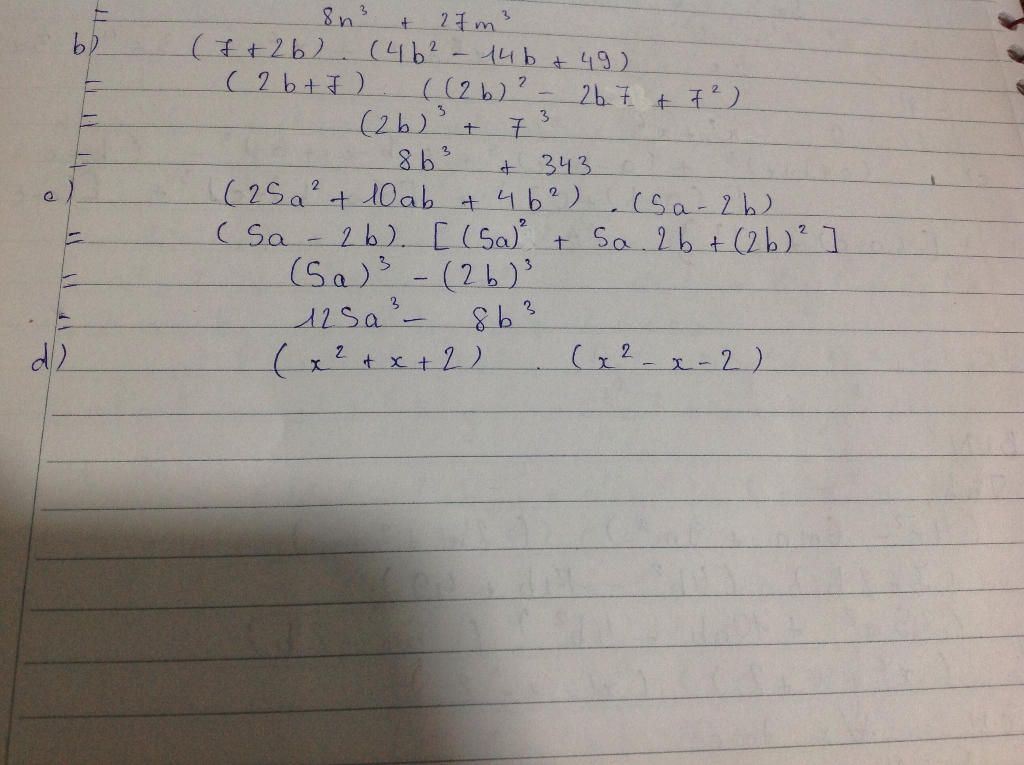 = 8n³ + 27m³
b) (7 + 2b) . (4b² - 14b + 49)
= (2b + 7) . ((2b)² - 2b.7 + 7²)
= (2b)³ + 7³
= 8b³ + 343
c) (25a² + 10ab + 4b²) . (5a - 2b)
= (5a - 2b) . [(5a)² + 5a.2b + (2b)²]
= (5a)³ - (2b)³
= 125a³ - 8b³
d) (x² + x + 2) . (x² - x - 2)